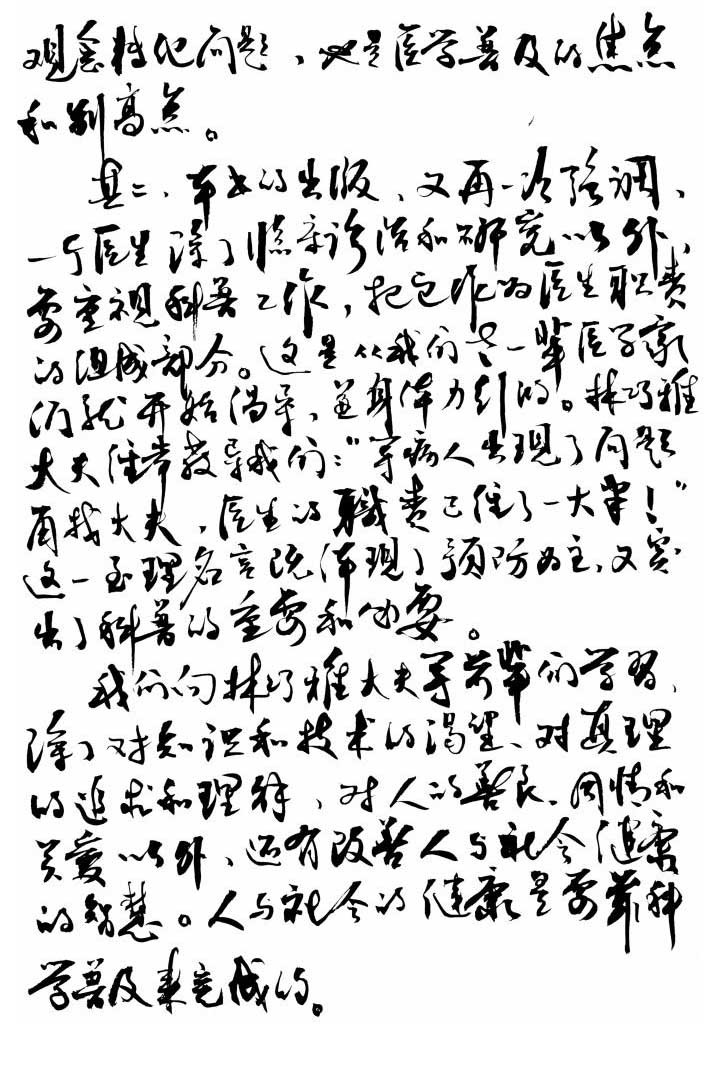 观念转化问题，也是医学普及的焦点
和制高点。
其二、本书的出版，又再一次强调，
一个医生除了临床诊治和研究以外，
要重视科普工作，把它作为医生职责
的组成部分。这是从我们老一辈医学家
们就开始倡导、并身体力行的。林巧雅
大夫经常教导我们："等病人出现了问题
再找大夫，医生的職责已经了一大半！"
这一至理名言既体现了预防为主，又突
出了科普的重要和必要。
我们向林巧雅大夫等前辈们学习，
除了对知识和技术的渴望、对真理
的追求和理解、对人的善良、同情和
关爱以外，还有改善人与社会健康
的智慧。人与社会的健康是要靠科
学普及来完成的。